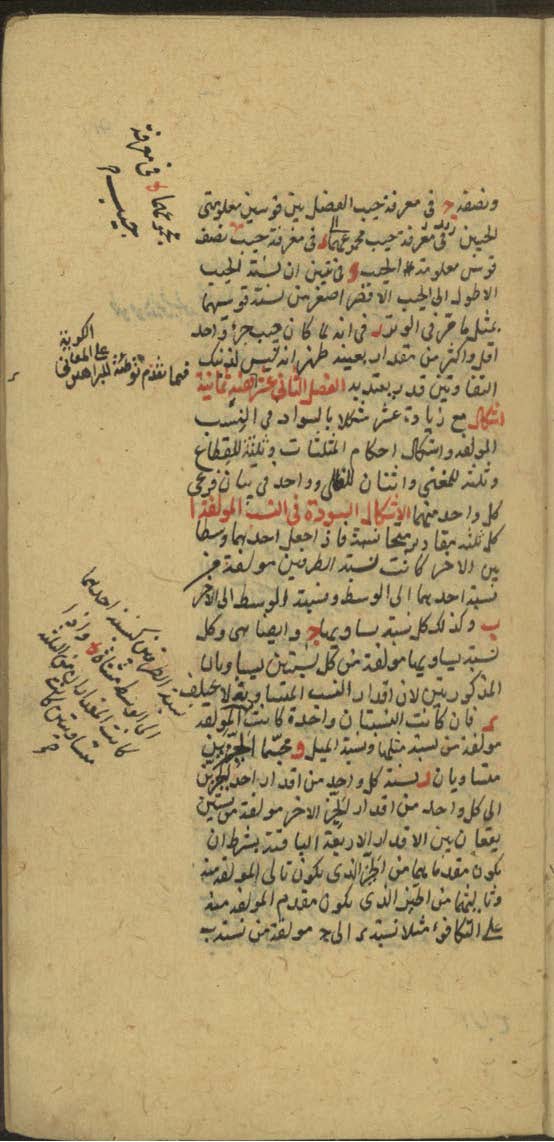 ونصفه ح في معرفة جيب الفضل بين قوسين معلومتي
الجيبين في معرفة جيب مجموعهما في معرفة جيب نصف
قوس معلومة الجيب و في تبين ان نسبة الجيب
الاطول الى الجيب الاقصر اصغر من نسبة قوسيهما
بمثل ما مر في الوتر ر في انه لما كان جيب جزء واحد
اقل واكثر من مقدار بعينه ظهر انه ليس لذينك
التفاوتين قدر يعتد به الفصل الثاني عشر ثمانية
اشكال مع زيادة عشر شكلا بالسواد في النسب
المولفة واشكال احكام المثلثات وثلثة للقطاع
وثلثة للمغني واثنان للظلي وواحد في بيان فرعي
كل واحد منهما الاشكال السودة في النسبة المولفة ا
كل ثلثة مقادير متجانسة فاذا جعل احدهما وسطا
بين الاخر كانت نسبة الطرفين مولفة من
نسبة احديهما الى الوسط ونسبة الوسط الى الاخر
ب وكذلك كل نسبة يساويها ج وايضا هي وكل
نسبة يساويها مولفة من كل نسبتين يساويان
المذكورتين لان اقدار النسب المتساوية لا تختلف
فان كانت النسبتان واحدة كانت المولفة
مولفة من نسبة مثلها ونسبة المثل و مجسما الجزئين
متساويان ر نسبة كل واحد من اقدار احد الجزئين
الى كل واحد من اقدار الجزء الاخر مولفة من نسبتين
يقعان بين الاقدار الاربعة الباقية بشرط ان
يكون مقدماهما من الجزء الذي يكون تالي المولفة منه
وتالياهما من الجزء الذي يكون مقدم المولفة منه
على التكافؤ مثلا نسبة الى ح مولفة من نسبة ب
مجموعهما في معرفة
جيب
فيما تقدم توطئة للبراهين
على المعاني
الكروية
نسبة الطرفين كنسبة احديهما
الى الوسط مثناة واذا
كانت المقدار ان من الثلثة
متساويتين كانت